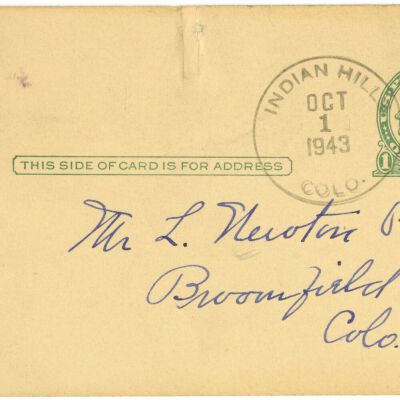 INDIAN HILL
OCT
1
1943
COLO.
THIS SIDE OF CARD IS FOR ADDRESS
1
Mr L. Newton
Broomfield
Colo.